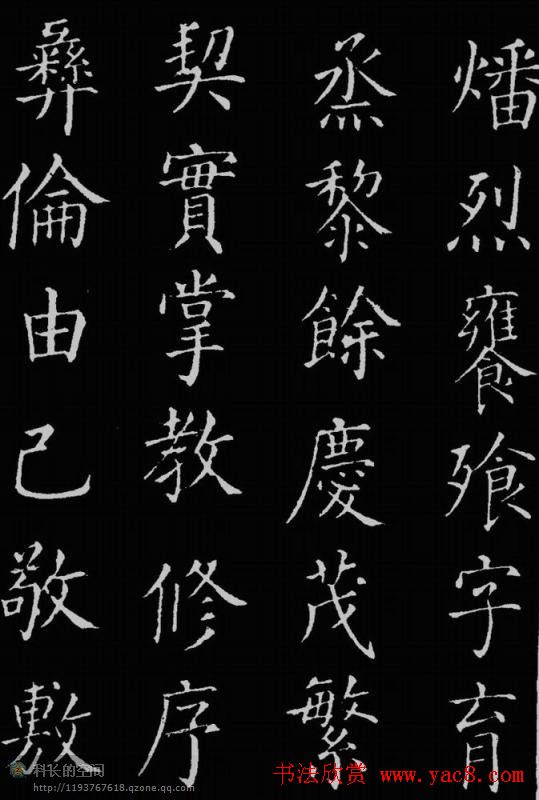 燔烈饔飱字育
烝黎餘慶茂繁
契實掌教修序
彝倫由己敬敷
科长的空间
http://1193767618.qzone.qq.com
书法欣赏 www.yac8.com